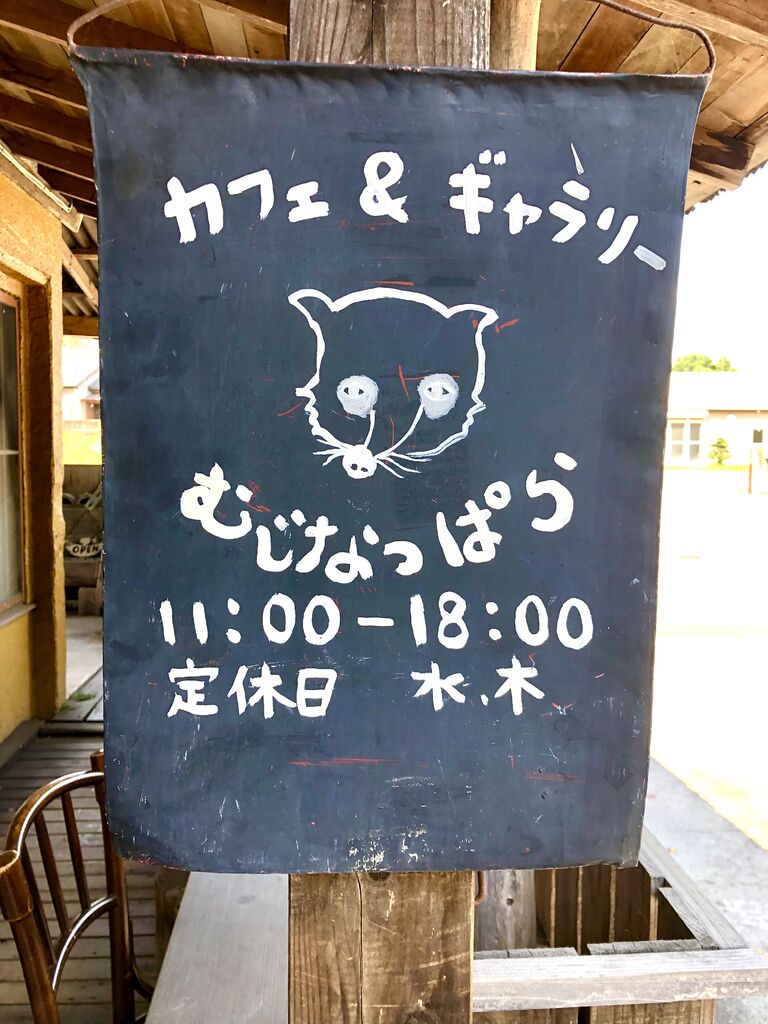 カフェ & ギャラリー
むじなっぱら
11:00-18:00
定休日 水、木
OPEN